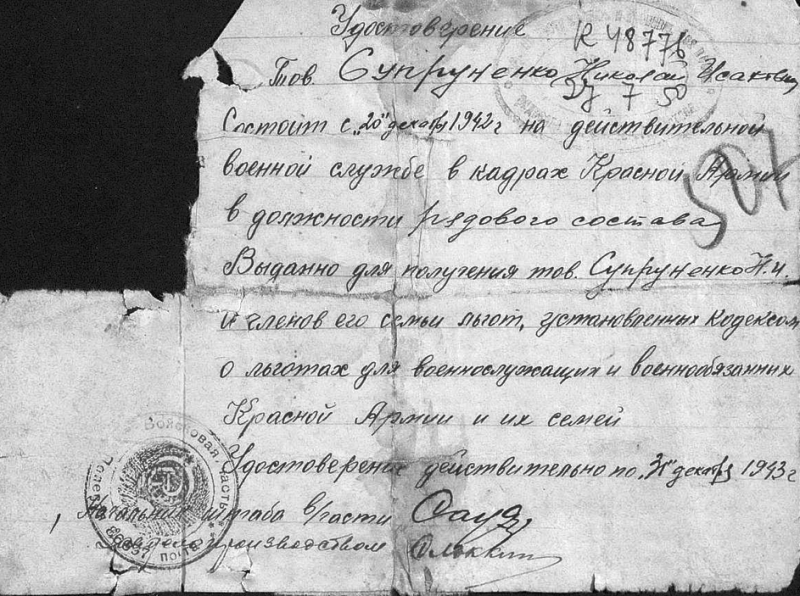 Удостоверение
К 48776
Тов. Супруненко Николай Исакович
27 7 50
Состоит с „20" декабря 1942 г на действительной
военной службе в кадрах Красной Армии
507
в должности рядового состава
Выданно для получения тов. Супруненко Н.И.
и членов его семьи льгот, установленных кодексом
о льготах для военнослужащих и военнообязанных
Красной Армии и их семей
Удостоверение действительно по „31" декабря 1943 г
Войсковая часть
Полевая
почта
Начальник штаба в/части
Зав делопроизводством